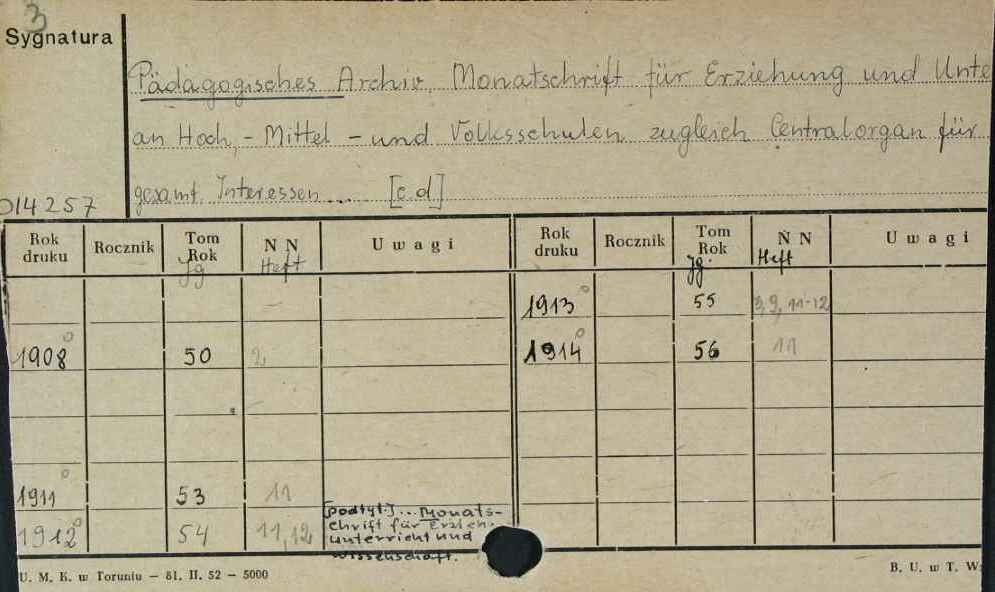 3
Sygnatura
Pädagogisches Archiv, Monatschrift für Erziehung und Unte
an Hoch, - Mittel - und Volksschulen zugleich Centralorgan für
gesamt. Interessen ... [c.d]
014257
Rok druku Rocznik Tom Rok Jg N N Heft Uwagi Rok druku Rocznik Tom Rok Jg. N N Heft Uwagi
1913° 55 3, 9, 11-12
1908° 50 2, 1914° 56 11
1911° 53 11
1912° 54 11, 12 [podtyt.] ... Monats-
chrift für Erzieh.
unterricht und
wissenschaft.
U. M. K. w Toruniu – 81. II. 52 – 5000
B. U. w T. W: